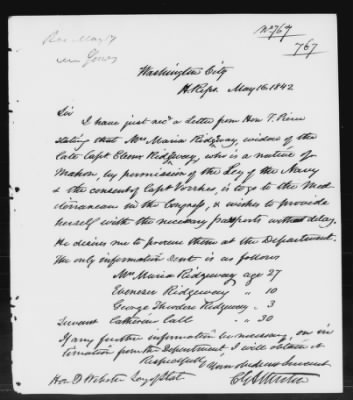 No 767
767
Washington City
H. Reps. May 16. 1842
Sir
I have just rec'd a letter from Hon T. Pierce
stating that Mrs Maria Ridgway, widow of the
late Capt Eben Ridgway, who is a native of
Mahon, by permission of the Secy of the Navy
& the consent of Capt Vorhes, is to go to the Med
iterranean in the Congress, & wishes to provide
herself with the necessary passports without delay.
He desires me to procure them at the Department.
The only information sent is as follows
Mrs Maria Ridgeway age 27
Ebenezer Ridgeway " 10
George Theodore Ridgeway " 3
Servant Catherine Call " 20
If any further information be necessary, on in
timation from the Department, I will obtain it
Respectfully
Your obedient Servant
Hon D Webster Secy of Stat